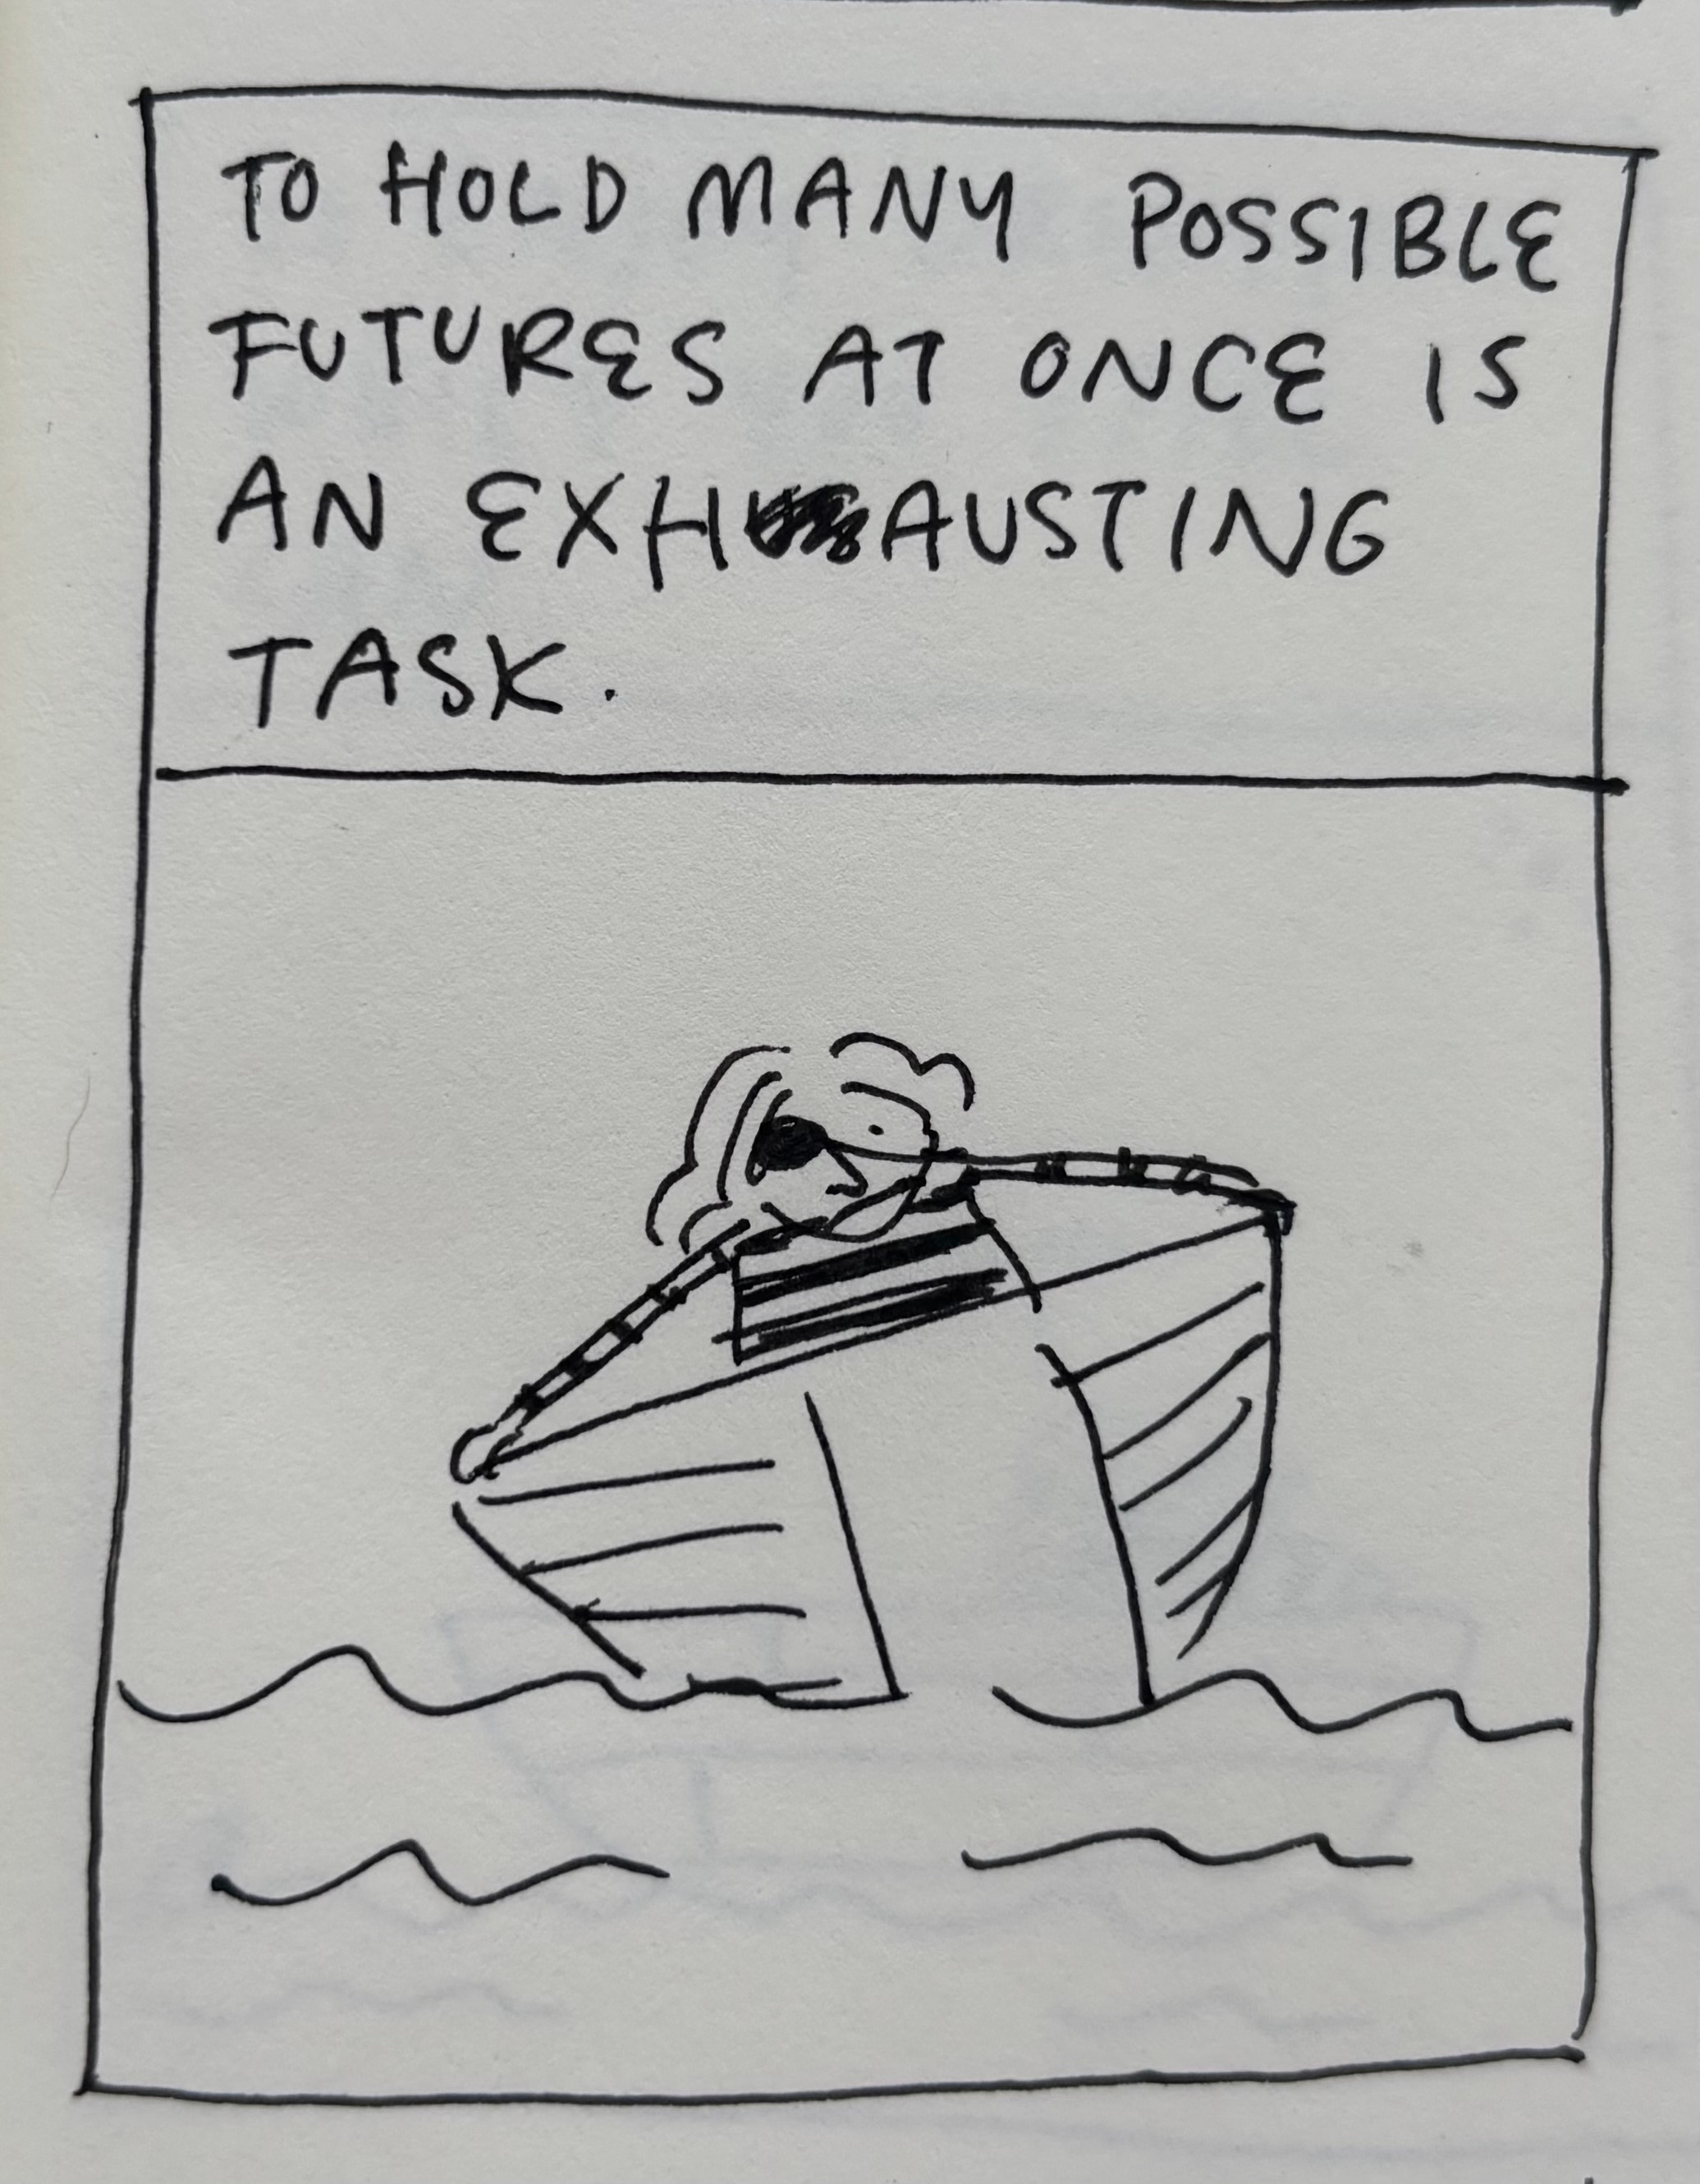 TO HOLD MANY POSSIBLE
FUTURES AT ONCE IS
AN EXHAUSTING
TASK.